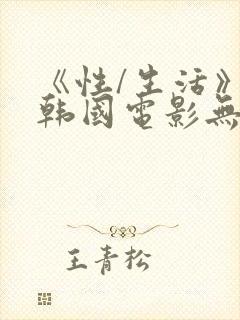 《性/生活》
韩國電影無
王青松